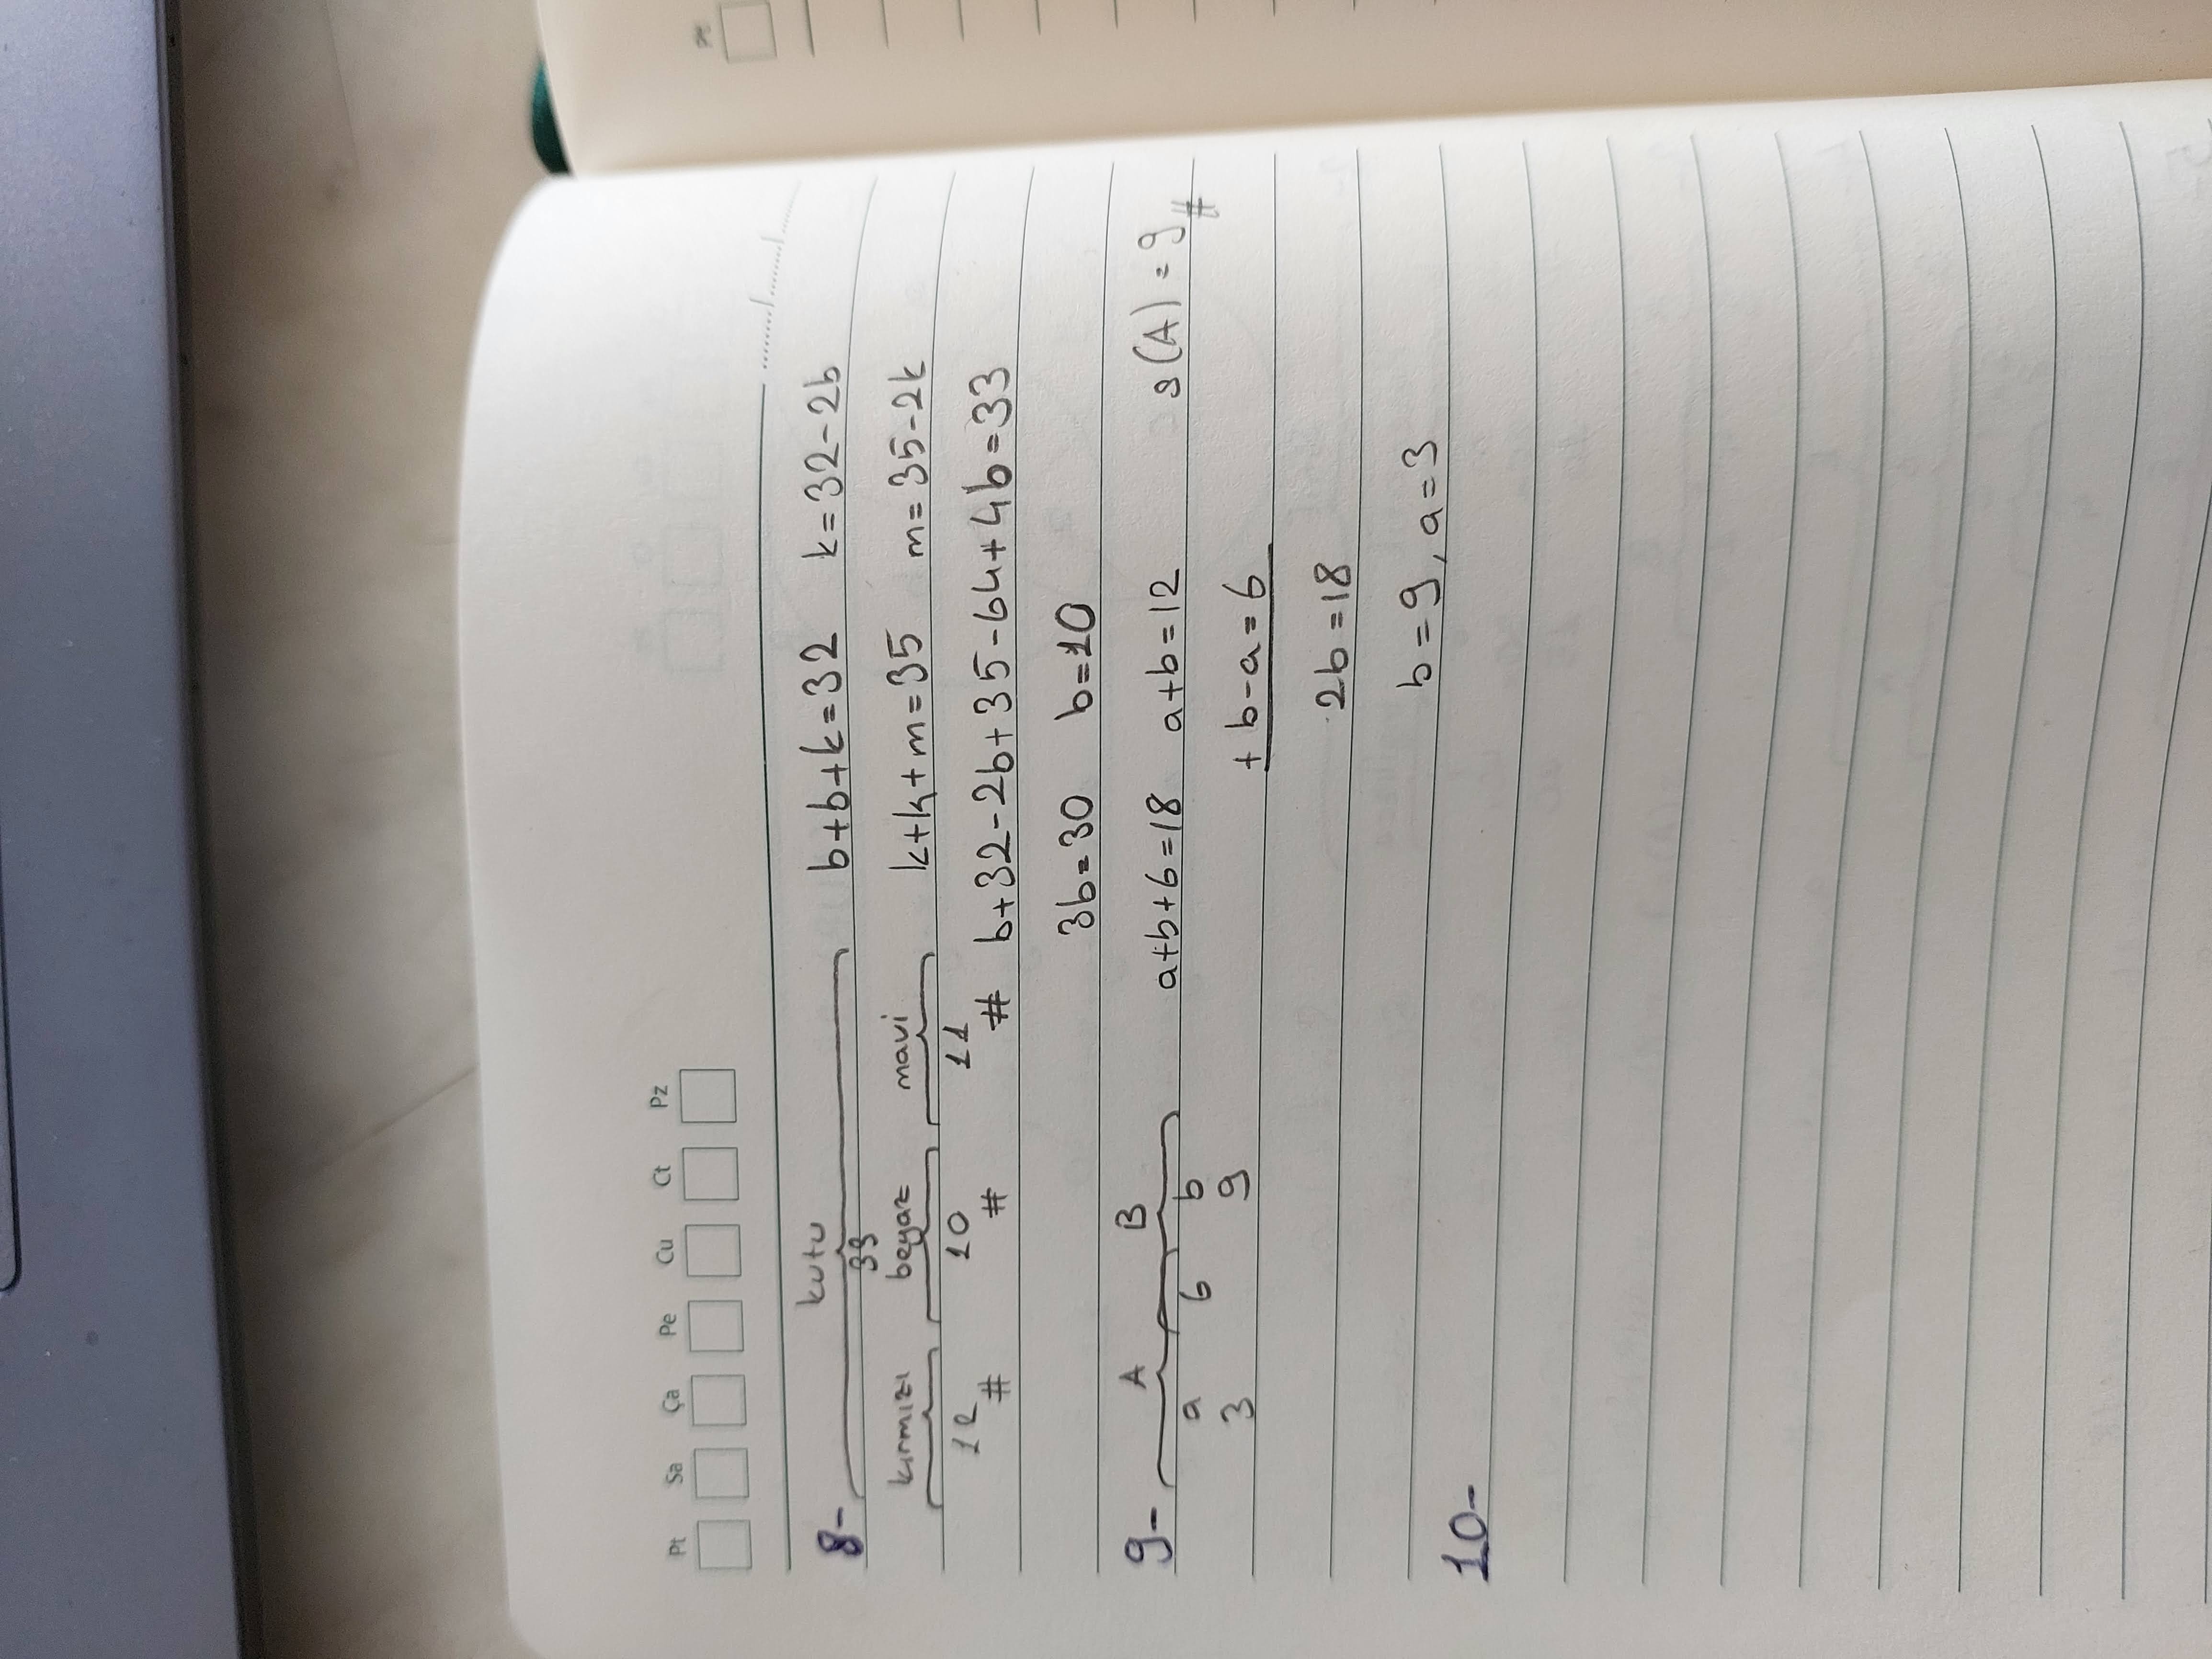 Pt Sa Ça Pe Cu Ct Pz
8- kutu
33
kırmızı beyaz mavi
12 10 11
# # #
b+b+k=32 k=32-2b
k+k+m=35 m=35-2k
b+32-2b+35-64+4b=33
3b=30 b=10
9- A B
a 6 b
3 9
a+b+6=18 a+b=12 s(A)=9 #
+ b-a=6
2b=18
b=9, a=3
10-